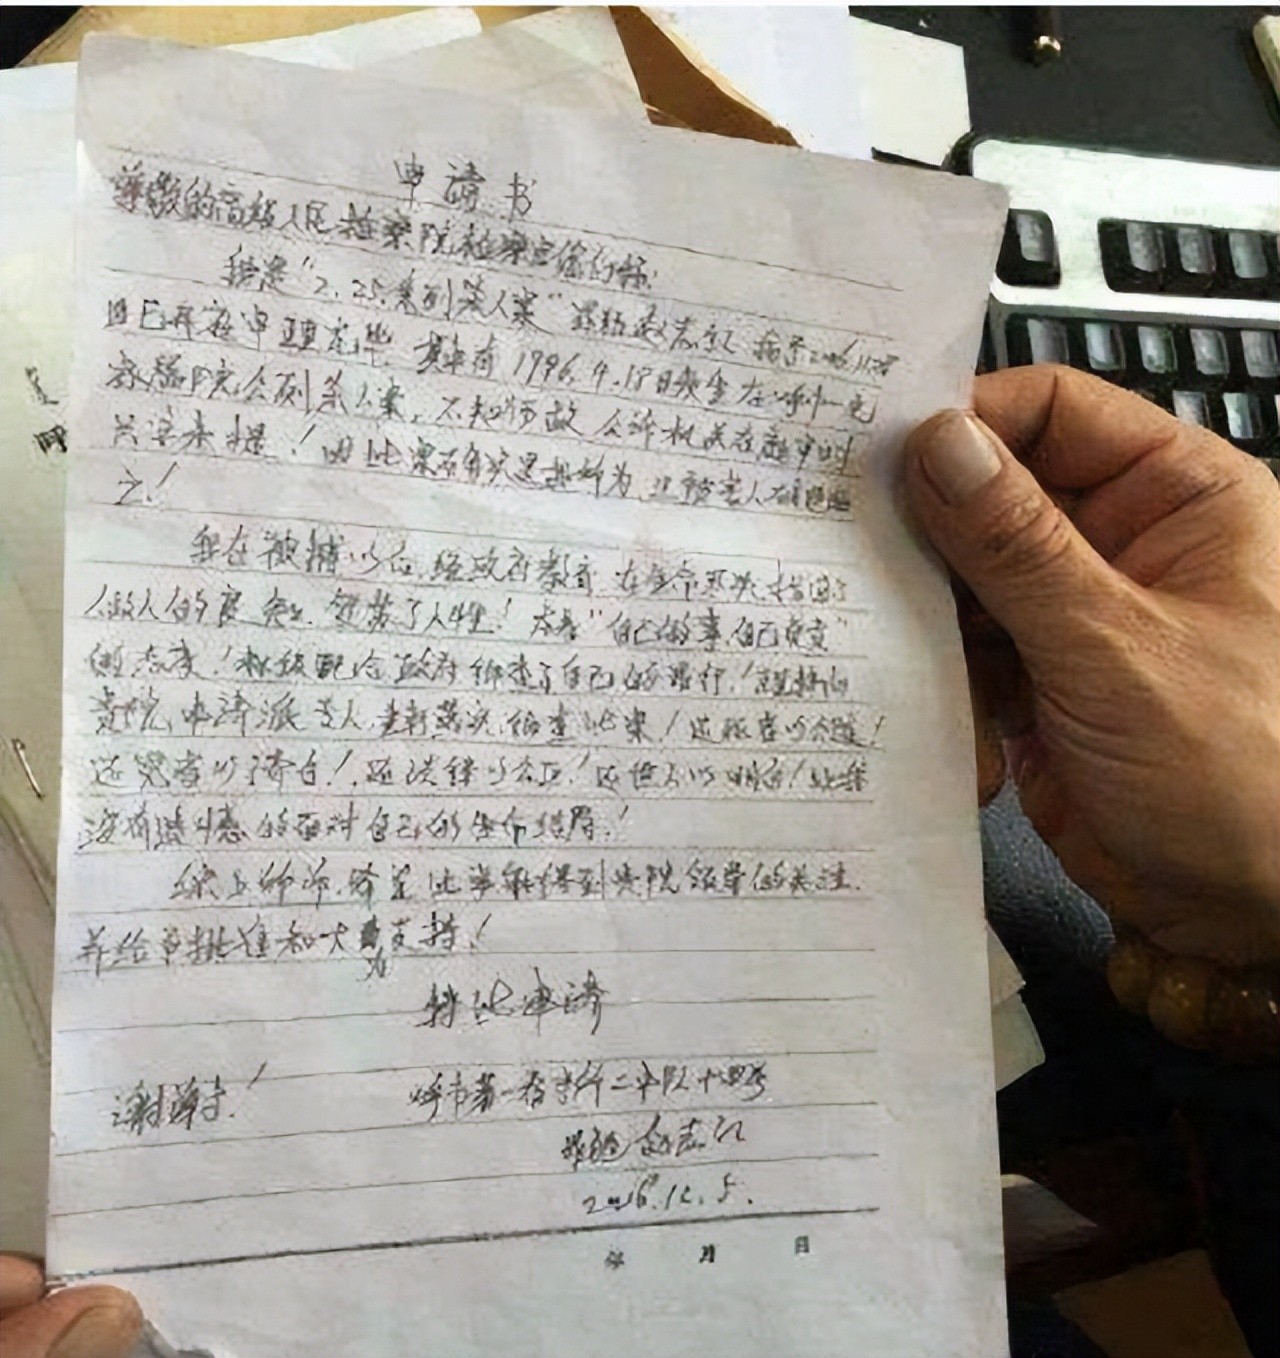 申请书
尊敬的高级人民检察院检察官您们好！
我是“2.25系列杀人案”罪犯赵志红 我于2006.11.28
日已开庭审理完毕。其中有1996.4.18日发生在呼市一毛
家属院公厕杀人案。不知何故 公诉机关在庭审时
只字未提！因此案确实是我所为，且被害人
之！
我在被捕以后，经政府教育 在生命
做人的良知，复苏了人性！本着“自己做事，自己负责”
的态度！积极配合政府彻查了自己的罪行！现特向
贵院申请派专人重新落实、彻查此案！还死者以公道！
还冤者以清白！还法律以公正！还世人以明白！让我
没有遗憾的面对自己的生命结局！
综上所述 希望此事能得到贵院领导的关注，
并给予批准和大力支持！
特此申请
谢谢！ 呼市第一看守所二中队十四号
罪犯 赵志红
2006.12.5.
年 月 日